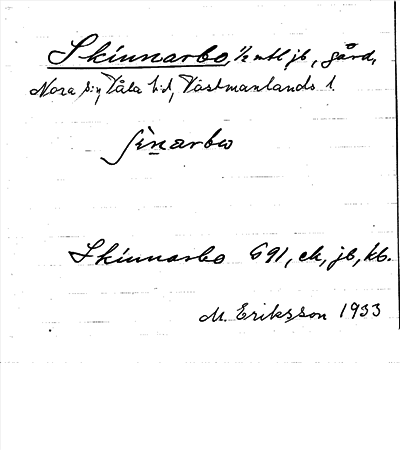 Skinnarbo, 1/2 mtl jb, gård,
Nora sn, Våla hd, Västmanlands l.
ʃìn̲arbω
Skinnarbo G 91, ek, jb, kb.
M. Eriksson 1933